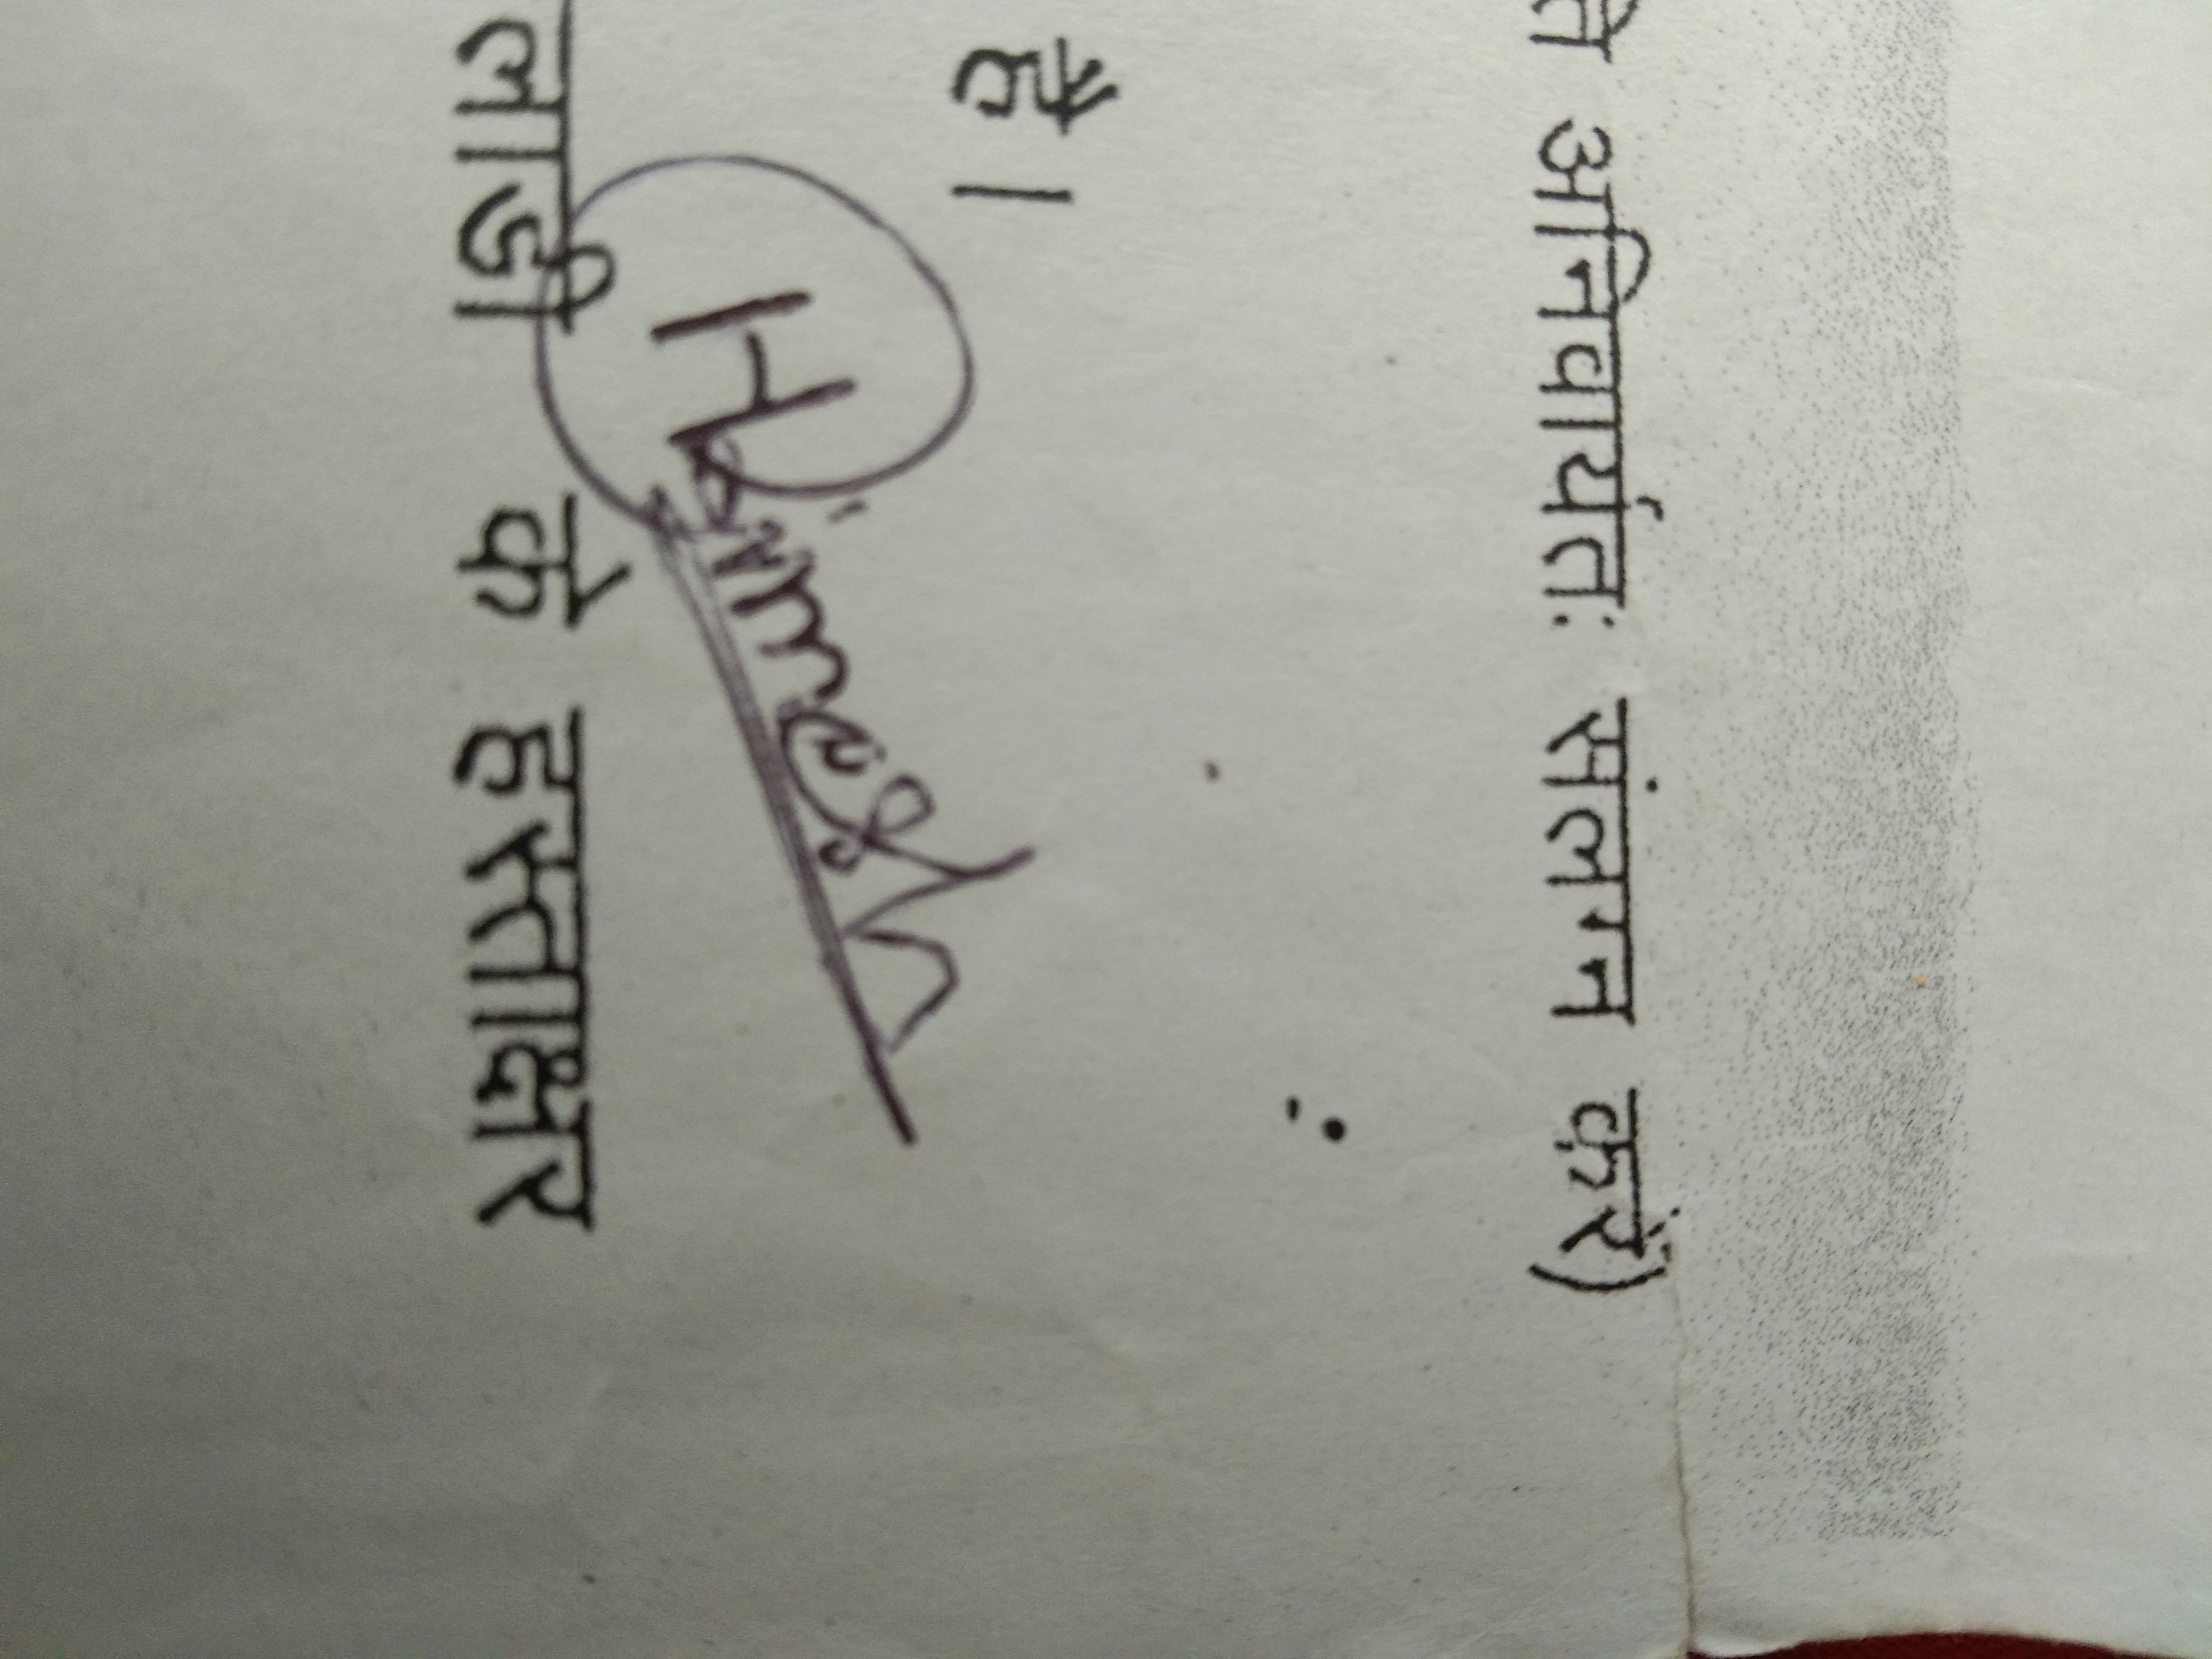 अनिवार्यतः संलग्न करें)
है।
Himesh
लाड़ी के हस्ताक्षर